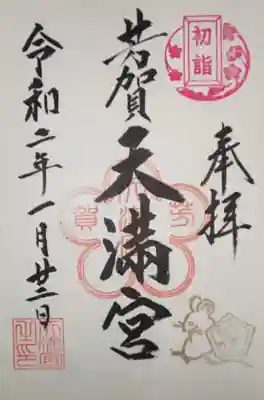 奉拝
初詣
芳賀天満宮
芳
賀
令和二年一月廿二日